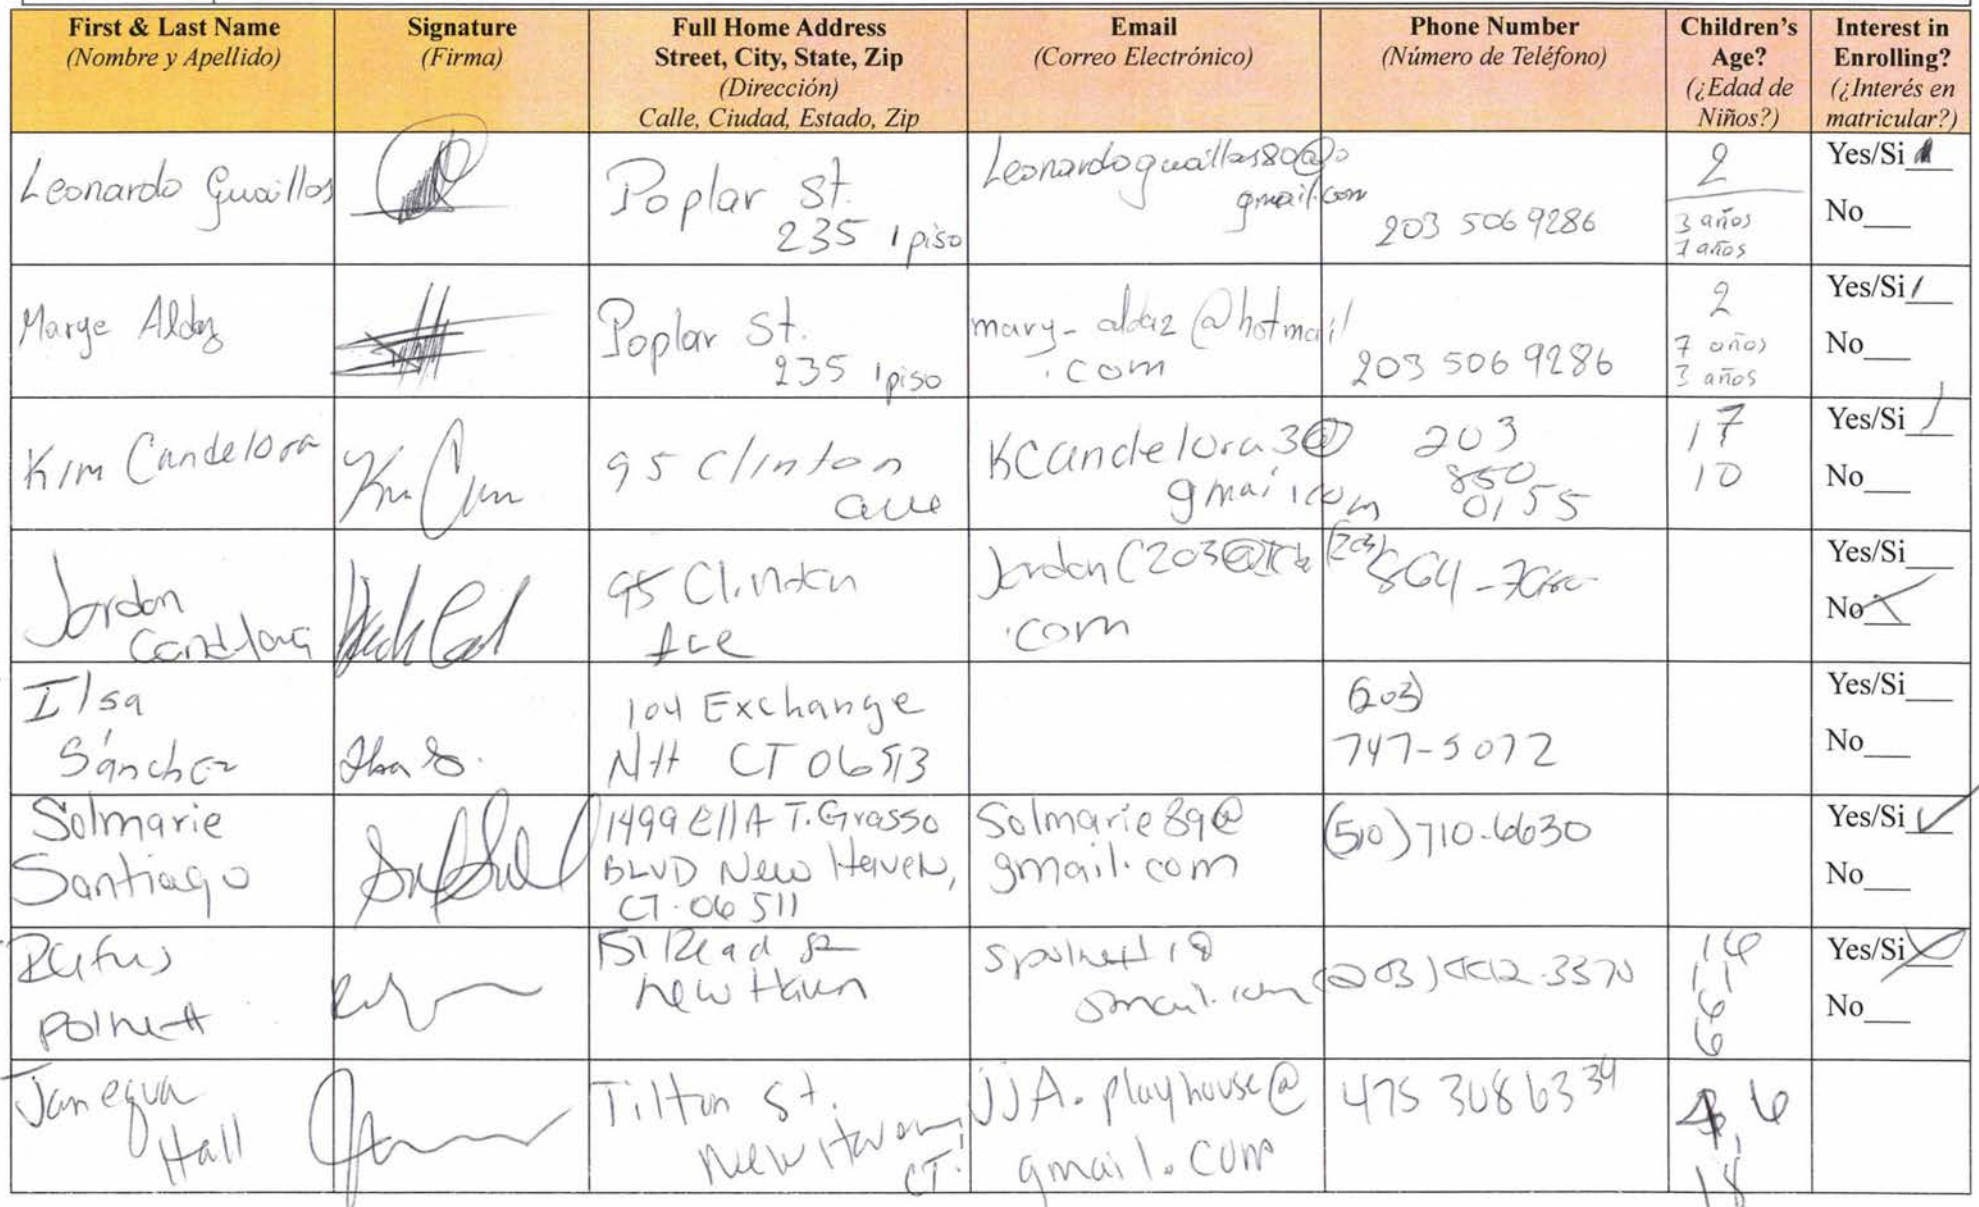 First & Last Name
(Nombre y Apellido)
Signature
(Firma)
Full Home Address
Street, City, State, Zip
(Dirección)
Calle, Ciudad, Estado, Zip
Email
(Correo Electrónico)
Phone Number
(Número de Teléfono)
Children's
Age?
(¿Edad de
Niños?)
Interest in
Enrolling?
(¿Interés en
matricular?)
Leonardo Guaillos
Poplar St.
235 1 piso
gmail.com
203 506 9286
2
3 años
7 años
Yes/Si
No
Marge
Poplar St.
235 1 piso
mary_aldaz@hotmail
.com
203 506 9286
2
7 años
3 años
Yes/Si
No
Kim Candelora
95 Clinton
ave
KCandelora3@
203
850
0155
17
10
Yes/Si
No
Jordan
95 Clinton
Ave
.com
(203)
Yes/Si
No X
Ilsa
Sánchez
Ilsa S.
104 Exchange
NH CT 06513
(203)
747-5072
Yes/Si
No
Solmarie
Santiago
1499 EllA T. Grasso
BLVD New Haven,
CT. 06511
Solmarie89@
gmail.com
(510) 710-6630
Yes/Si ✓
No
Rufus
New Haven
11
6
6
Yes/Si X
No
Janequa
Hall
Tilton St.
New Haven,
CT.
JJA.playhouse@
gmail.com
475 308 6334
6
18